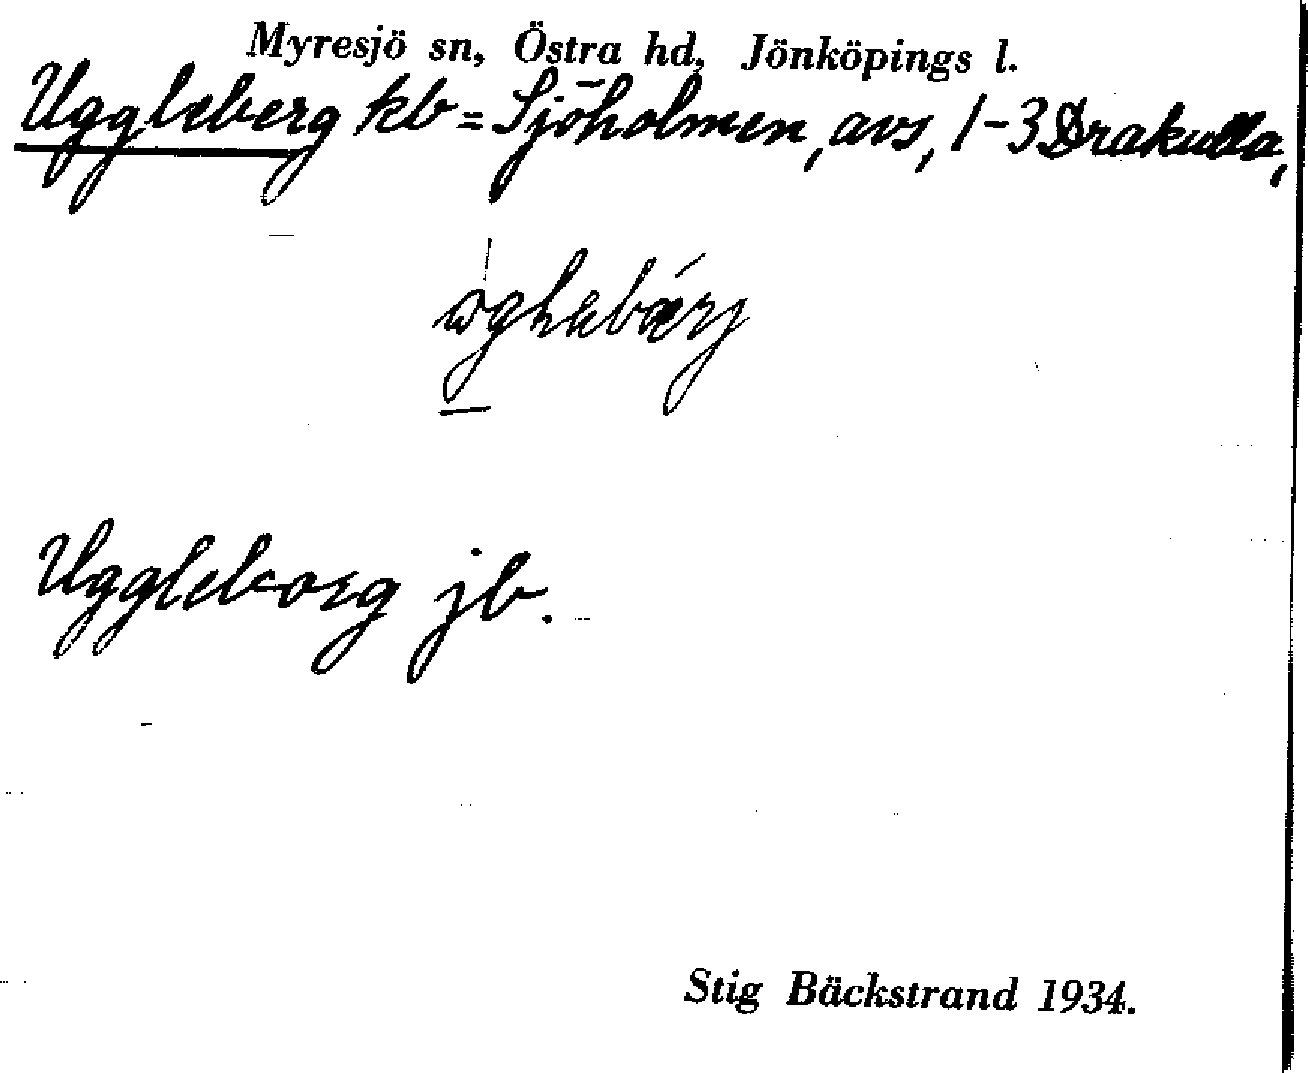 Myresjö sn, Östra hd, Jönköpings l.
Uggleberg kb = Sjöholmen, avs, 1-3 Drakulla,
Uggleborg jb.
Stig Bäckstrand 1934.